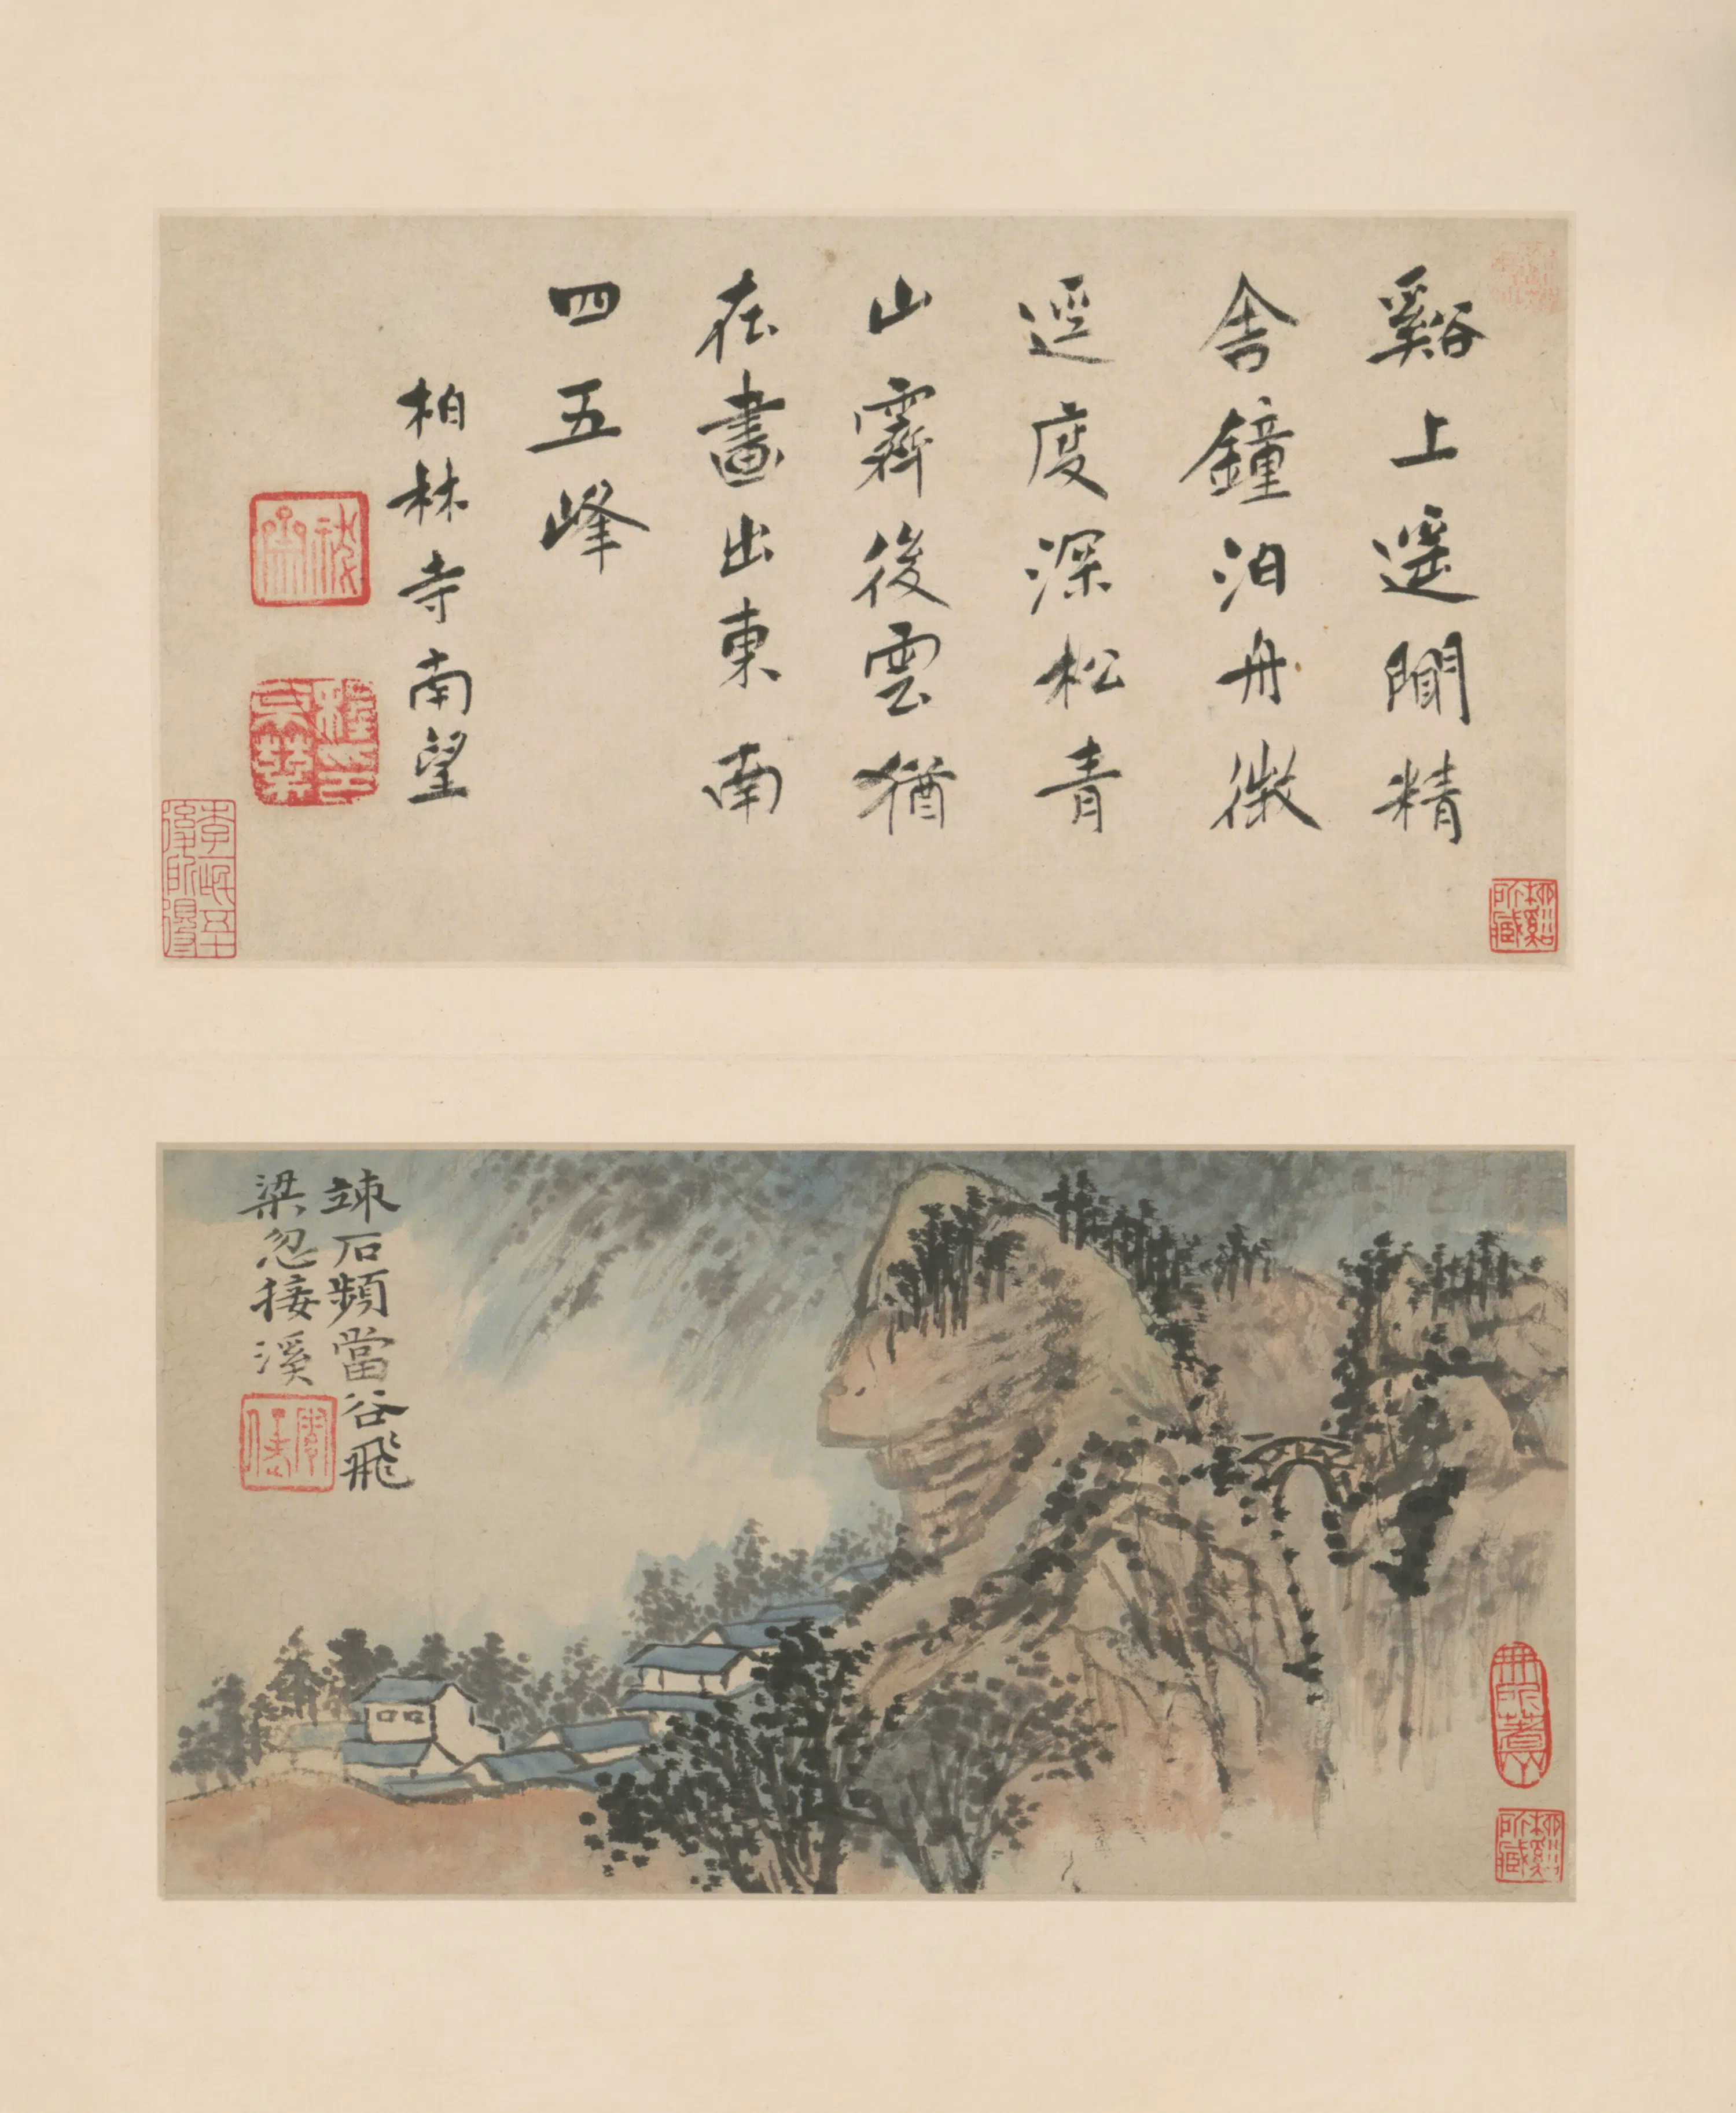 谿上遥聞精
舍鐘泊舟微
逕度深松青
山霽後雲猶
在畫出東南
四五峰
柏林寺南望
竦石頻當谷飛
梁忽接溪